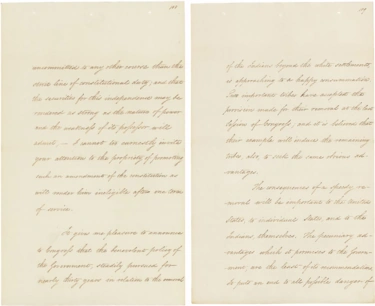 uncommitted to any other course than the
strict line of constitutional duty; and that
the securities for this independence may be
rendered as strong as the nature of power
and the weakness of its possessor will
admit, — I cannot too earnestly invite
your attention to the propriety of promoting
such an amendment of the constitution as
will render him ineligible after one term
of service.
It gives me pleasure to announce
to Congress that the benevolent policy of
the Government, steadily pursued for
nearly thirty years in relation to the removal
of the Indians beyond the white settlements,
is approaching to a happy consummation.
Two important tribes have accepted the
provision made for their removal at the last
Session of Congress; and it is believed that
their example will induce the remaining
tribes, also, to seek the same obvious ad-
vantages.
The consequences of a speedy re-
moval will be important to the United
States, to individual States, and to the
Indians themselves. The pecuniary ad-
vantages which it promises to the Govern-
ment, are the least of its recommendations.
It puts an end to all possible danger of